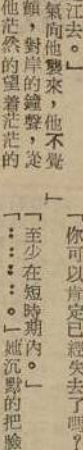 「你可以肯定已經失去了嗎?
「至少在短時期內。」
「⋯⋯⋯⋯。」她沉默的把臉
江去。」
氣向他襲來，他不覺
顫，對岸的鐘聲，從
他茫然的望着茫茫的